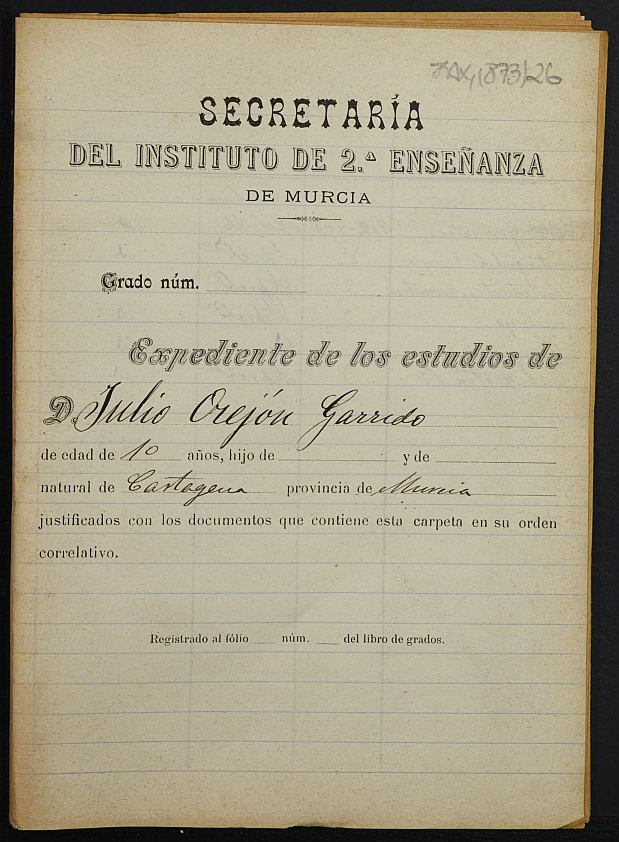 1873/26
SECRETARÍA
DEL INSTITUTO DE 2.ª ENSEÑANZA
DE MURCIA
Grado núm.
Expediente de los estudios de
D. Julio Orejón Garrido
de edad de 10 años, hijo de y de
natural de Cartagena provincia de Murcia
justificados con los documentos que contiene esta carpeta en su orden
correlativo.
Registrado al fólio núm. del libro de grados.